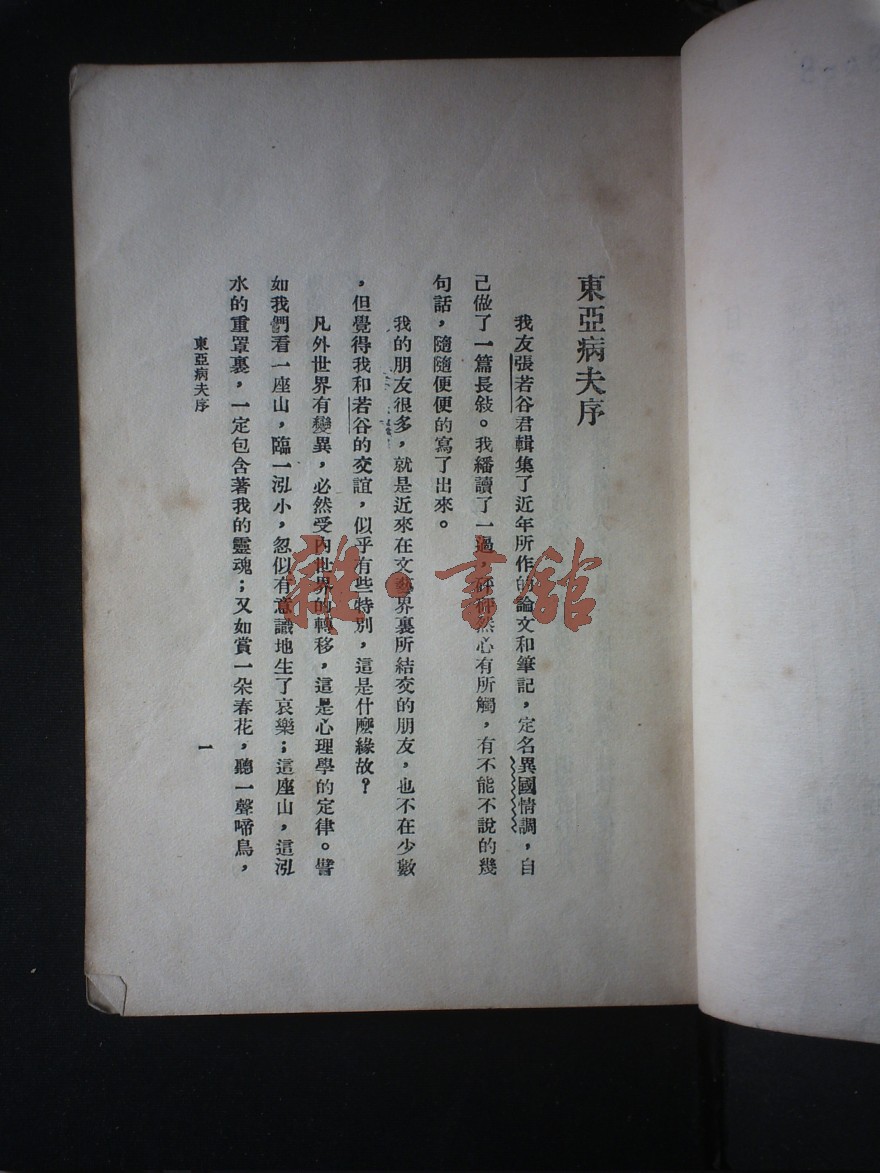 東亞病夫序
我友張若谷君輯集了近年所作的論文和筆記，定名異國情調，自
己做了一篇長敍。我繙讀了一過，砰砰然心有所觸，有不能不說的幾
句話，隨隨便便的寫了出來。
我的朋友很多，就是近來在文藝界裏所結交的朋友，也不在少數
，但覺得我和若谷的交誼，似乎有些特別，這是什麼緣故？
凡外世界有變異，必然受內世界的轉移，這是心理學的定律。譬
如我們看一座山，臨一泓小，忽似有意識地生了哀樂；這座山，這泓
水的重罩裏，一定包含著我的靈魂；又如賞一朵春花，聽一聲啼鳥，
東亞病夫序
一
雜·書舘